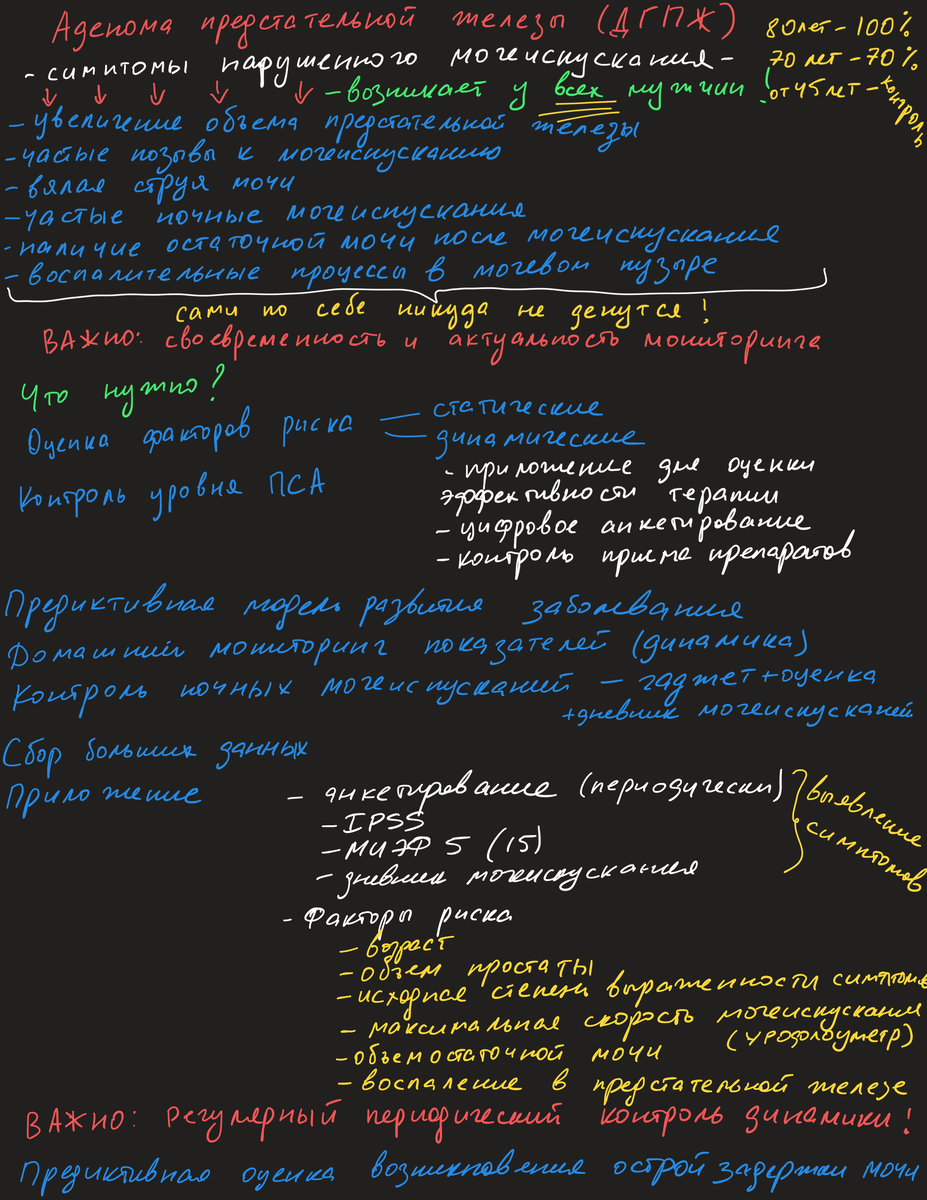 Аденома предстательной железы (ДГПЖ)
80 лет - 100%
- симптомы нарушенного мочеиспускания -
70 лет - 70%
- возникает у всех мужчин!
от 45 лет - контроль
- увеличение объема предстательной железы
- частые позывы к мочеиспусканию
- вялая струя мочи
- частые ночные мочеиспускания
- наличие остаточной мочи после мочеиспускания
- воспалительные процессы в мочевом пузыре
сами по себе никуда не денутся!
ВАЖНО: своевременность и актуальность мониторинга
Что нужно?
Оценка факторов риска
- статические
- динамические
Контроль уровня ПСА
- приложение для оценки
эффективности терапии
- цифровое анкетирование
- контроль приема препаратов
Предиктивная модель развития заболевания
Домашний мониторинг показателей (динамика)
Контроль ночных мочеиспусканий - гаджет + оценка
+ дневник мочеиспусканий
Сбор больших данных
Приложение
- анкетирование (периодически)
- IPSS
- МИЭФ 5 (15)
- дневник мочеиспускания
выявление
симптомов
- Факторы риска
- возраст
- объем простаты
- исходная степень выраженности симптомов
- максимальная скорость мочеиспускания
(урофлоуметр)
- объем остаточной мочи
- воспаление в предстательной железе
ВАЖНО: Регулярный периодический контроль динамики!
Предиктивная оценка возникновения острой задержки мочи